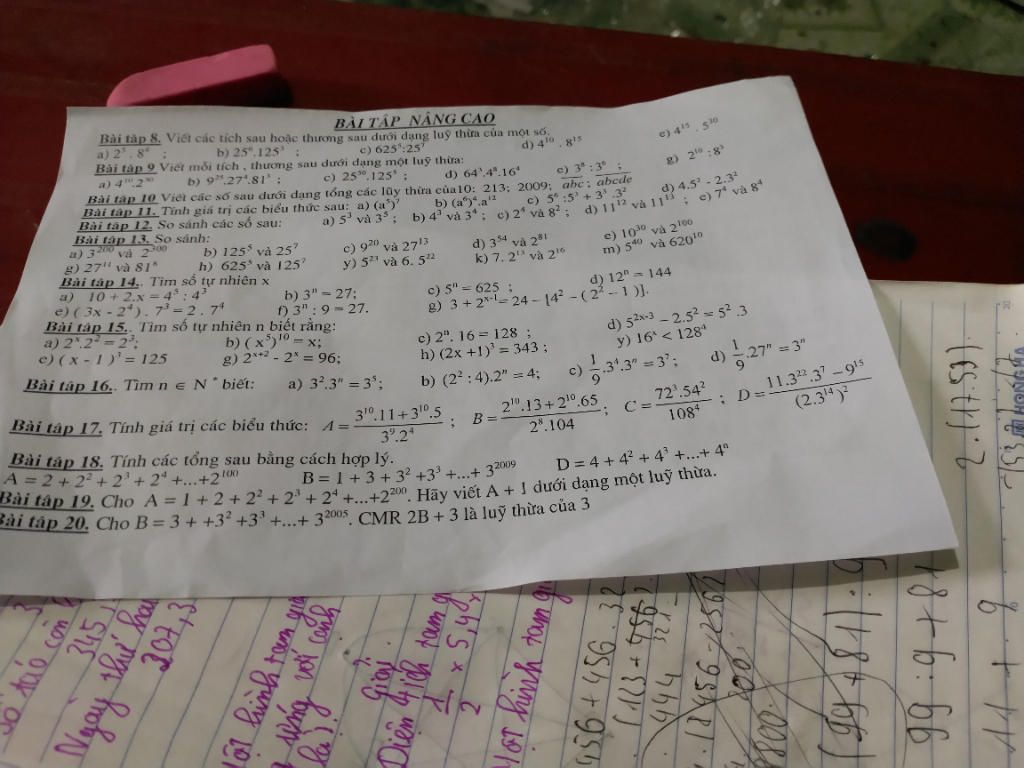 BÀI TẬP NÂNG CAO
Bài tập 8. Viết các tích sau hoặc thương sau dưới dạng luỹ thừa của một số.
a) 2⁵ . 8⁴ ; b) 25⁶.125³ ; c) 625⁵:25⁷ d) 4¹⁰ . 8¹⁵ e) 4¹⁵ . 5³⁰
Bài tập 9 Viết mỗi tích , thương sau dưới dạng một luỹ thừa:
a) 4¹⁰.2³⁰ b) 9²⁵.27⁴.81³ ; c) 25⁵⁰.125⁵ ; d) 64³.4⁸.16⁴ e) 3⁸ : 3⁶ ; g) 2¹⁰ : 8³
Bài tập 10 Viết các số sau dưới dạng tổng các lũy thừa của10: 213; 2009; abc ; abcde
Bài tập 11. Tính giá trị các biểu thức sau: a) (a⁵)⁷ b) (a⁶)⁴.a¹² c) 5⁶ :5³ + 3³ .3² d) 4.5² - 2.3²
Bài tập 12. So sánh các số sau: a) 5³ và 3⁵ ; b) 4³ và 3⁴ ; c) 2⁴ và 8² ; d) 11¹² và 11¹³ ; e) 7⁴ và 8⁴
Bài tập 13. So sánh:
a) 3²⁰⁰ và 2³⁰⁰ b) 125⁵ và 25⁷ c) 9²⁰ và 27¹³ d) 3⁵⁴ và 2⁸¹ e) 10³⁰ và 2¹⁰⁰
g) 27¹¹ và 81⁸ h) 625⁵ và 125⁷ y) 5²³ và 6. 5²² k) 7. 2¹³ và 2¹⁶ m) 5⁴⁰ và 620¹⁰
Bài tập 14.. Tìm số tự nhiên x
a) 10 + 2.x = 4⁵ : 4³ b) 3ⁿ = 27; c) 5ⁿ = 625 ; d) 12ⁿ = 144
e) ( 3x - 2⁴) . 7³ = 2 . 7⁴ f) 3ⁿ : 9 = 27. g) 3 + 2ˣ⁻¹ = 24 – [4² – ( 2² – 1 )].
Bài tập 15.. Tìm số tự nhiên n biết rằng:
a) 2ˣ.2² = 2³; b) ( x⁵)¹⁰ = x; c) 2ⁿ. 16 = 128 ; d) 5²ˣ⁻³ – 2.5² = 5² .3
e) ( x - 1 )³ = 125 g) 2ˣ⁺² - 2ˣ = 96; h) (2x +1)³ = 343 ; y) 16ˣ < 128⁴
Bài tập 16.. Tìm n ∈ N * biết: a) 3².3ⁿ = 3⁵; b) (2² : 4).2ⁿ = 4; c) 1/9 .3⁴.3ⁿ = 3⁷; d) 1/9 .27ⁿ = 3ⁿ
Bài tập 17. Tính giá trị các biểu thức: A = (3¹⁰.11 + 3¹⁰.5)/(3⁹.2⁴) ; B = (2¹⁰.13 + 2¹⁰.65)/(2⁸.104) ; C = (72³.54²)/(108⁴) ; D = (11.3²².3⁷ − 9¹⁵)/((2.3¹⁴)²)
Bài tập 18. Tính các tổng sau bằng cách hợp lý.
A = 2 + 2² + 2³ + 2⁴ +...+2¹⁰⁰ B = 1 + 3 + 3² +3³ +...+ 3²⁰⁰⁹ D = 4 + 4² + 4³ +...+ 4ⁿ
Bài tập 19. Cho A = 1 + 2 + 2² + 2³ + 2⁴ +...+2²⁰⁰. Hãy viết A + 1 dưới dạng một luỹ thừa.
Bài tập 20. Cho B = 3 + +3² +3³ +...+ 3²⁰⁰⁵. CMR 2B + 3 là luỹ thừa của 3
345
Ngày thứ hai
207,3
hình tam giác
ứng với cạnh
Giải
Diện tích tam
1/2 × 5,4
hình tam gi
456 + 456 . 32
(99 + 81) : 9
99 : 9 + 81
11 + 9
2.(17.53)